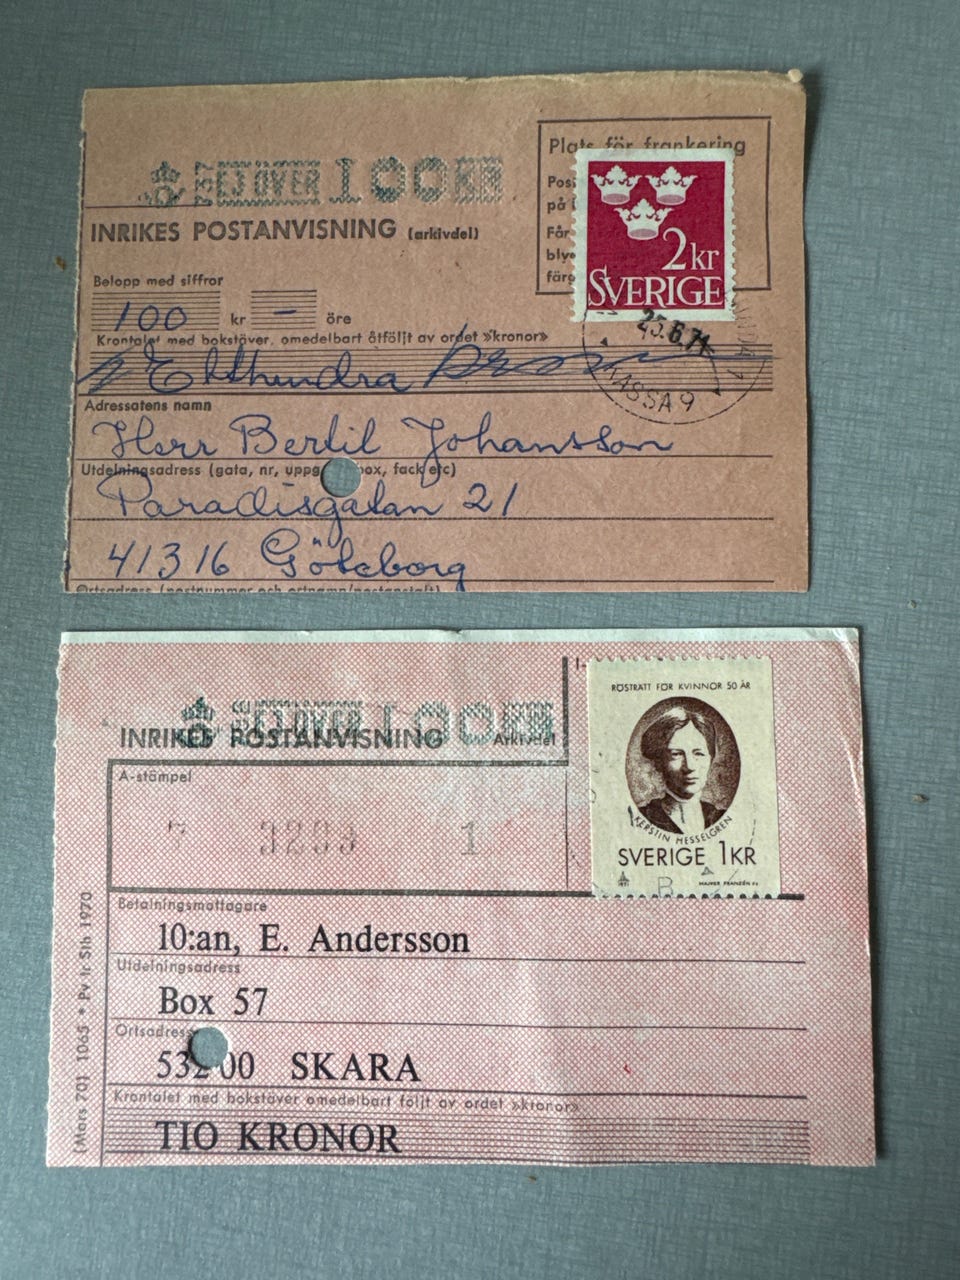 EJ ÖVER 100 KR
Plats för frankering
INRIKES POSTANVISNING (arkivdel)
på
Får
2 kr
SVERIGE
Belopp med siffror
100 kr — öre
Krontalet med bokstäver, omedelbart åtföljt av ordet »kronor»
Etthundra
23.6.71
KASSA 9
Adressatens namn
Herr Bertil Johansson
Utdelningsadress (gata, nr, box, fack etc)
Paradisgatan 21
41316 Göteborg
Ortsadress (postnummer och ortnamn/postanstalt)
EJ ÖVER 100 KR
INRIKES POSTANVISNING Arkivdel
RÖSTRÄTT FÖR KVINNOR 50 ÅR
KERSTIN HESSELGREN
SVERIGE 1KR
MAJVOR FRANZÉN
A-stämpel
1
Betalningsmottagare
10:an, E. Andersson
Utdelningsadress
Box 57
Ortsadress
532 00 SKARA
Krontalet med bokstäver omedelbart följt av ordet »kronor»
TIO KRONOR
(Mars 701 1065 * Pv Tr Sth 1970